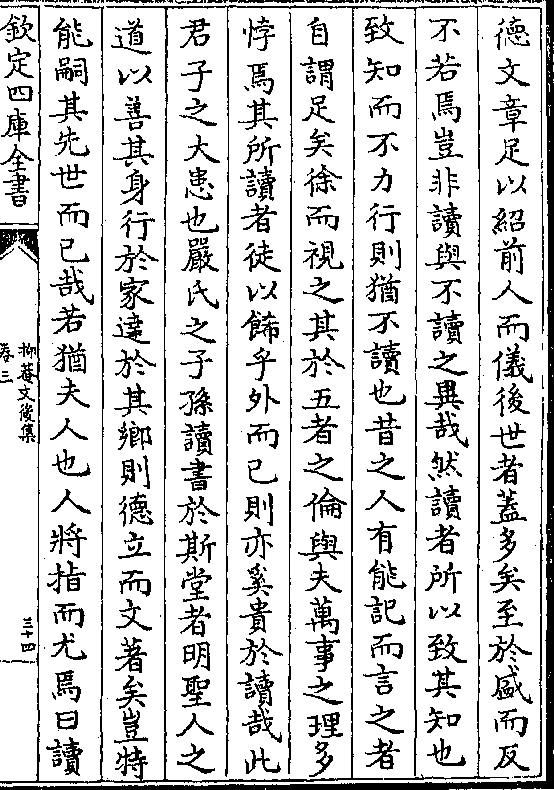 德文章足以紹前人而儀後世者蓋多矣至於盛而反
不若焉豈非讀與不讀之異哉然讀者所以致其知也
致知而不力行則猶不讀也昔之人有能記而言之者
自謂足矣徐而視之其於五者之倫與夫萬事之理多
悖焉其所讀者徒以餙乎外而已則亦奚貴於讀哉此
君子之大患也嚴氏之子孫讀書於斯堂者明聖人之
道以善其身行於家達於其鄉則德立而文著矣豈特
能嗣其先世而已哉若猶夫人也人將指而尤焉曰讀
欽定四庫全書
抑菴文後集
卷三
三十四